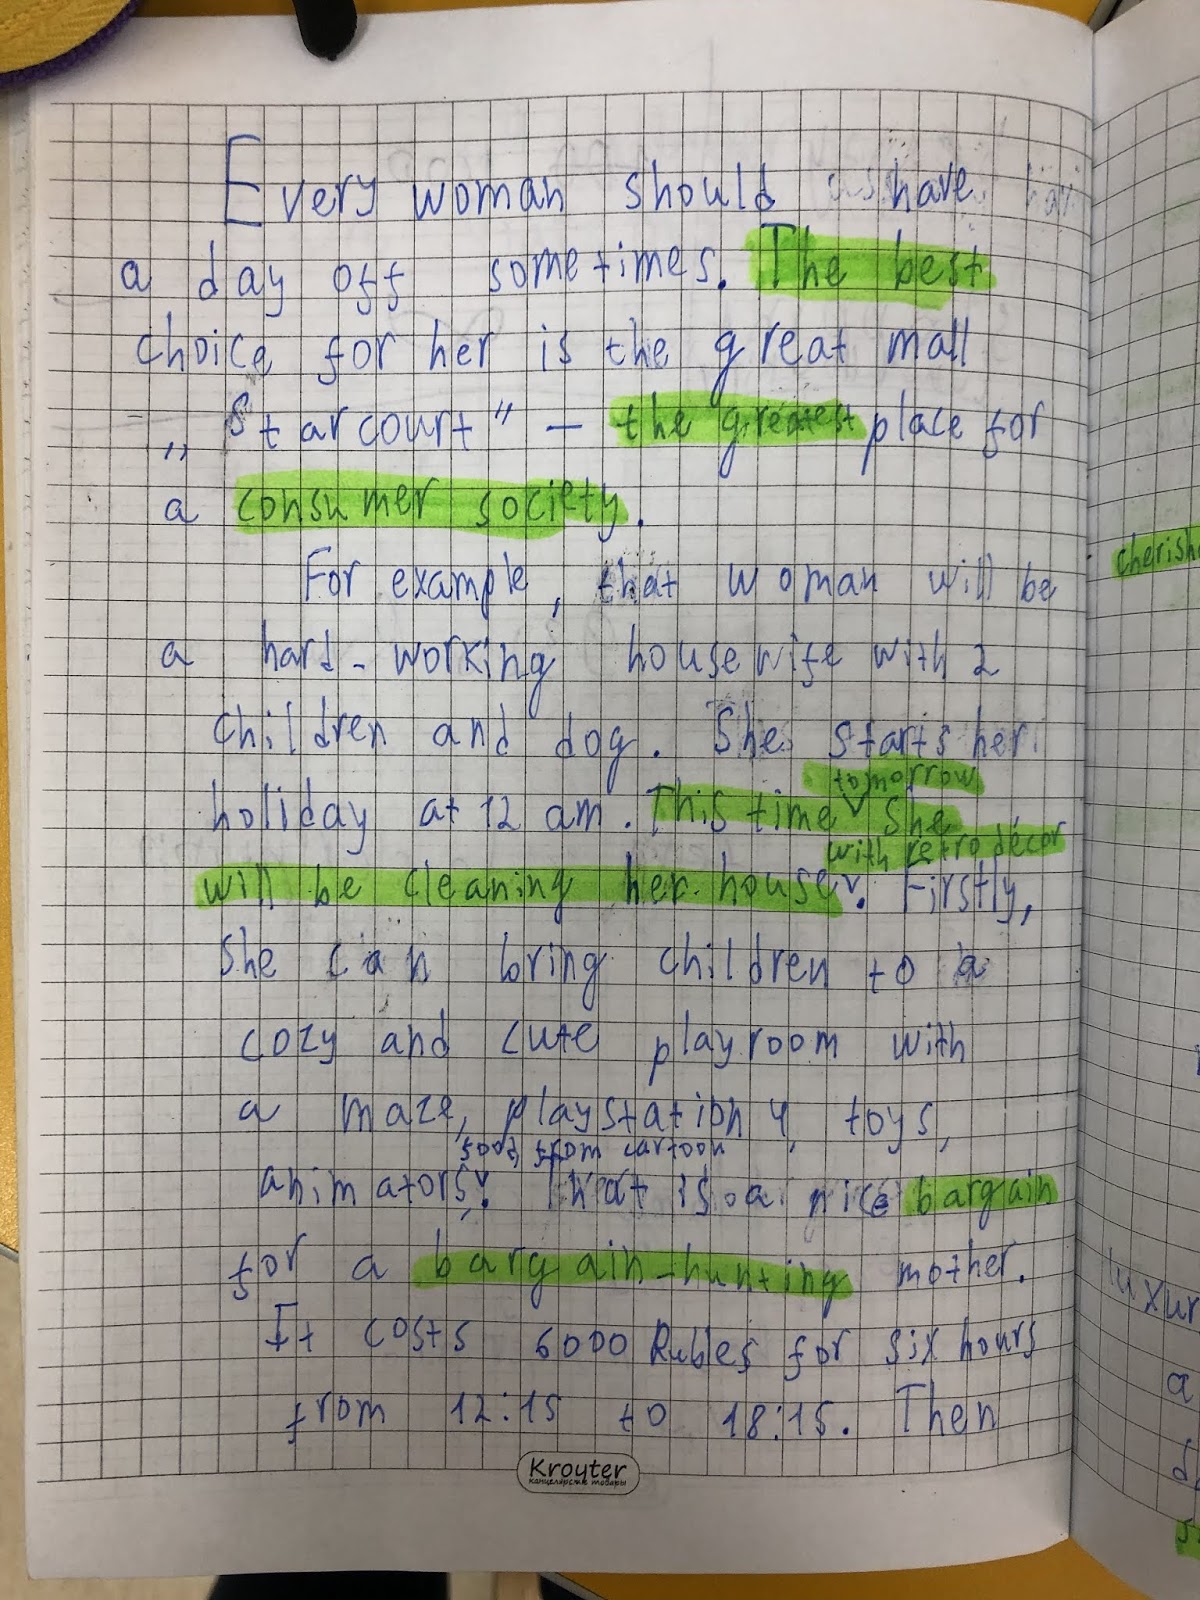 Every woman should have
a day off sometimes. The best
choice for her is the great mall
„Starcourt" – the greatest place for
a consumer society.
For example, that woman will be
a hard-working housewife with 2
children and dog. She starts her
tomorrow
holiday at 12 am. This time ˅ she
with retro décor
will be cleaning her house ˅. Firstly,
she can bring children to a
cozy and cute playroom with
a maze, playstation 4, toys,
food from cartoon
animators ˅. That is a nice bargain
for a bargain-hunting mother.
It costs 6000 Rubles for six hours
from 12:15 to 18:15. Then
Krouter
канцелярские товары
cherish
luxur
a